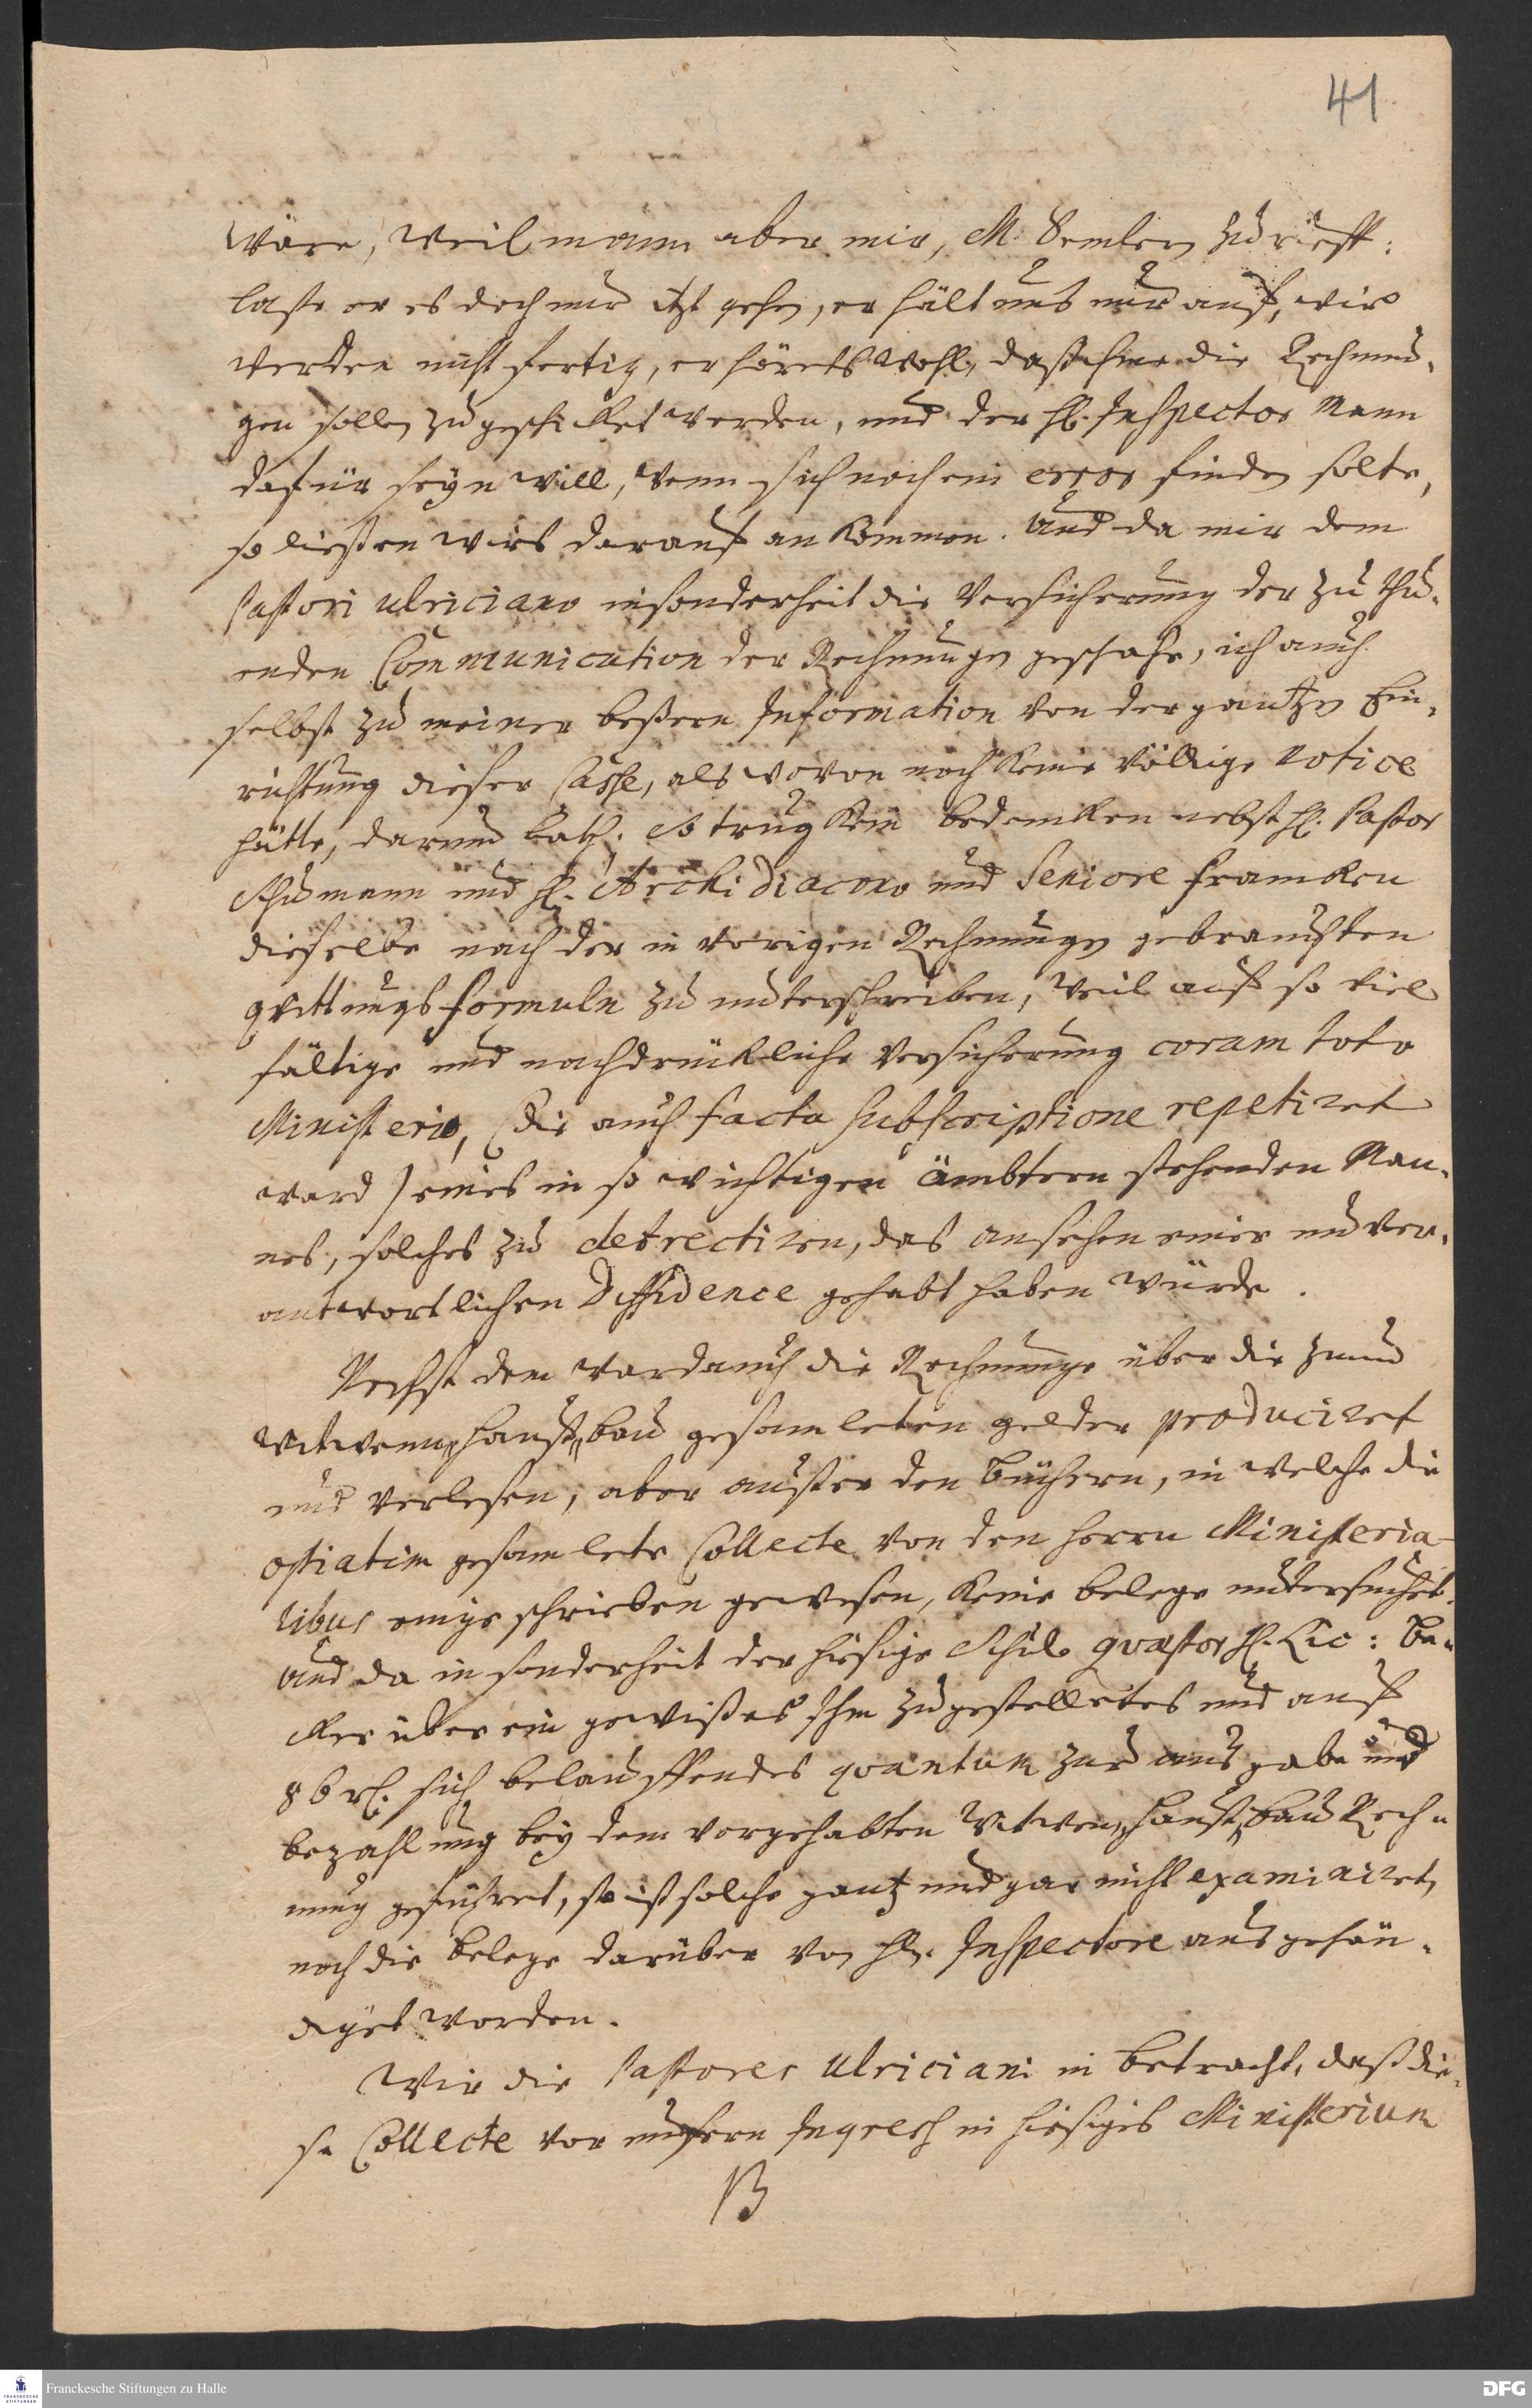 41
wäre, weil man aber mir, M. Semlern zurieff:
laße er es doch nur itzt gehen, er hält uns nur auf, wir
werden nicht fertig, er hörets wohl, daß ihme die Rechnun-
gen sollen zugeschicket werden, und der H. Inspector Mann
dafür seyn will, wenn sich noch ein error finden solte,
so ließen wirs darauf ankommen. Und da mir dem
Pastori Ulriciano insonderheit die Versicherung der zu thu-
enden Communication der Rechnungen geschahe, ich auch
selbst zu meiner beßern Information von der gantzen Ein-
richtung dieser Casse, als wovon noch keine völlige notice
hätte, darum bath; So trug kein bedencken nebst H. Pastor
Schumann und H. Archidiacono und Seniore Francken
dieselbe nach der in vorigen Rechnungen gebrauchten
qvittungs formuln zu unterschreiben, weil auf so viel
fältige und nachdrückliche Versicherung coram toto
Ministerio, (die auch facta subscriptione repetiret
ward) eines in so wichtigen ämbtern stehenden Man-
nes, solches zu detrectiren, das ansehen einer unver-
antwortlichen Diffidence gehabt haben würde.
Nechst dem ward auch die Rechnunge über die zum
Witwenn hauß bau gesamleten gelder produciret
und verlesen, aber außer den Büchern, in welche die
ostiatim gesamlete Collecte von den Herrn Ministeria-
libus eingeschrieben gewesen, keine belege untersuchet.
Und da in sonderheit der hiesige Schul qvæstor H. Lic: Be-
cker über ein gewißes Ihm zugestelletes und auf
86 rl. sich belauffendes qvantum zur ausgabe und
bezahlung bey dem vorgehabten Witwen hauß bau Rech-
nung geführet, so ist solche gantz und gar nicht examiniret,
noch die belege darüber von Hn. Inspectore ausgehän-
diget worden.
Wir die Pastores Ulriciani in betracht, daß die-
se Collecte vor unsern Ingress in hiesiges Ministerium
B
Franckesche Stiftungen zu Halle
FRANCKESCHE STIFTUNGEN
DFG